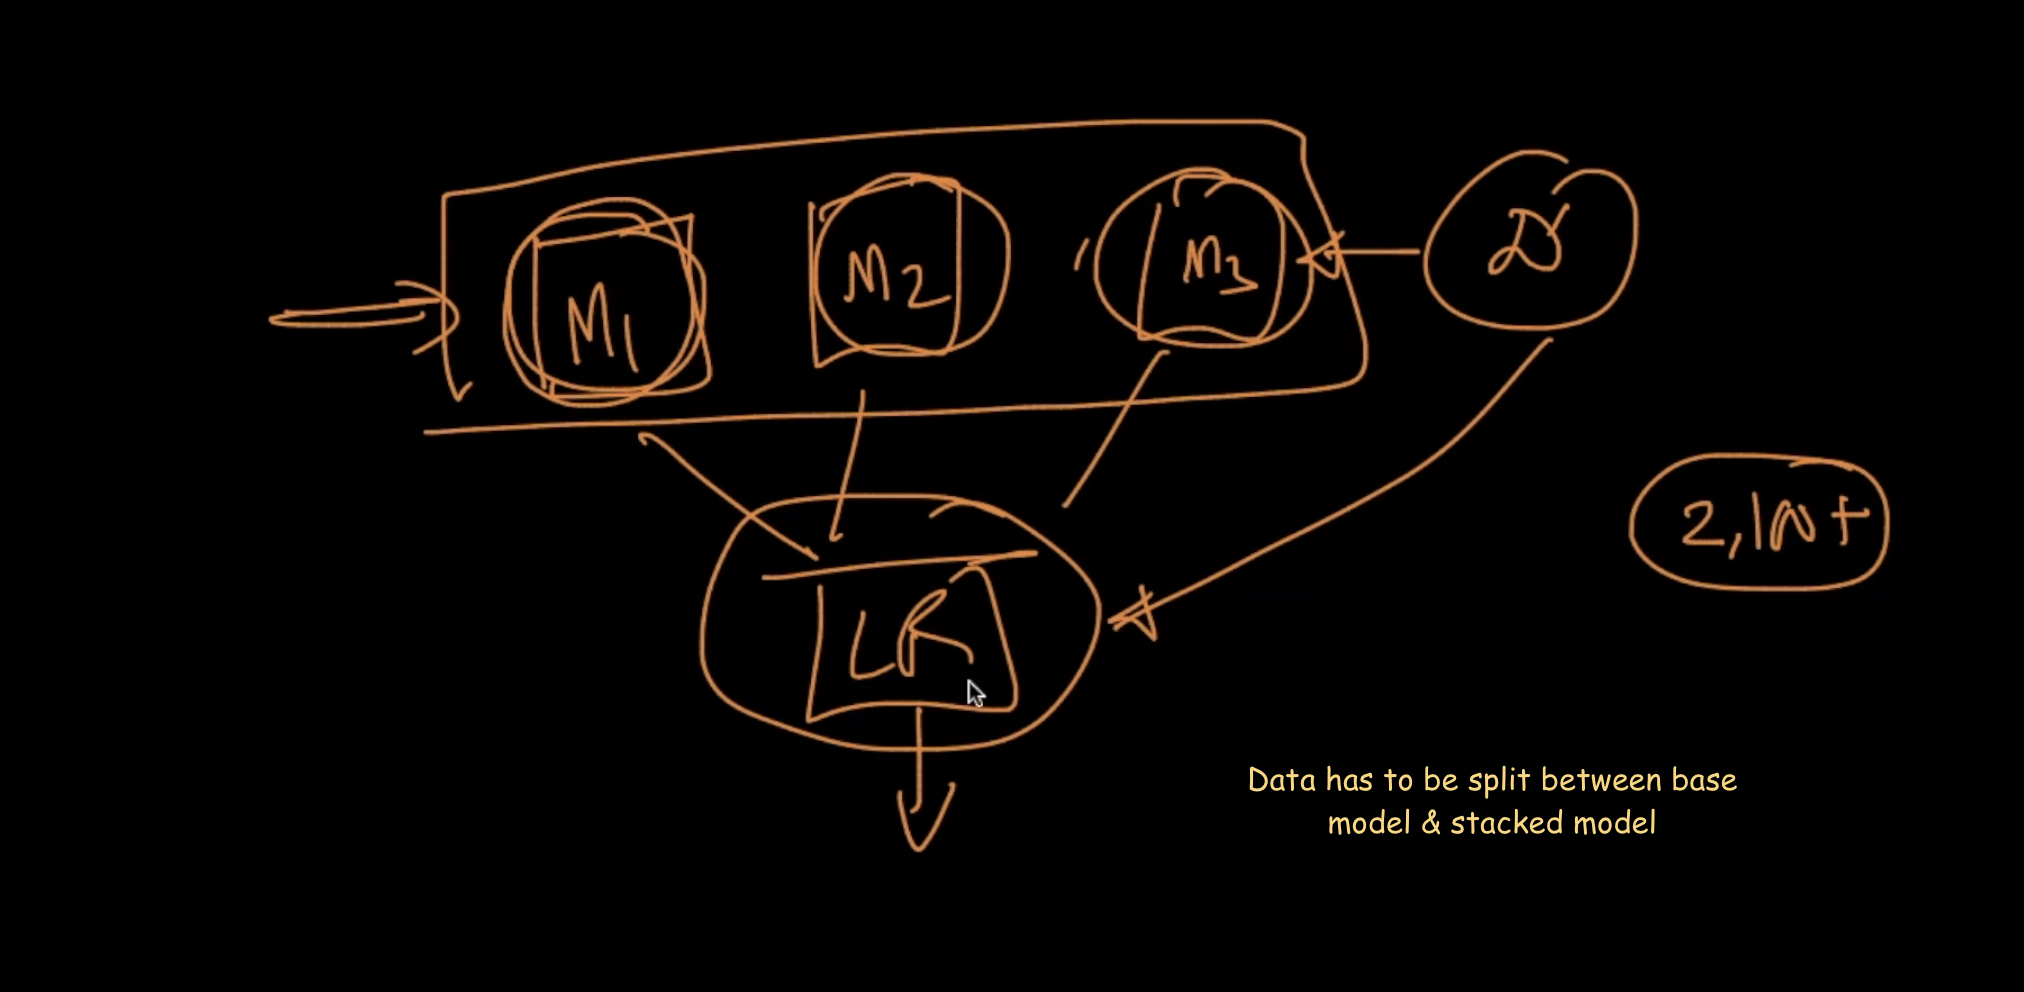 M1
M2
M3
D
LR
Data has to be split between base
model & stacked model